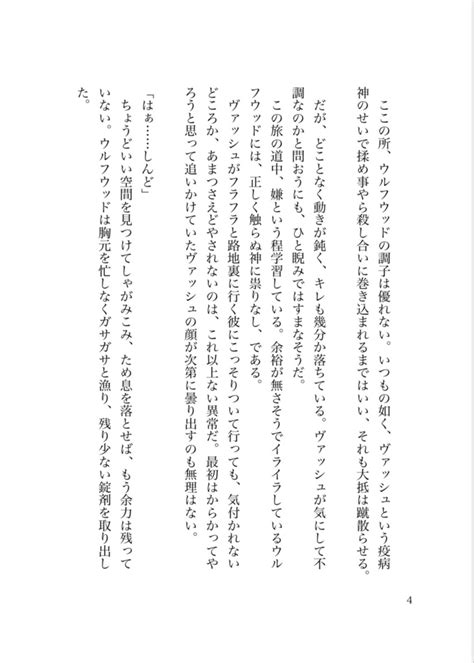 ここの所、ウルフウッドの調子は優れない。いつもの如く、ヴァッシュという疫病
神のせいで揉め事やら殺し合いに巻き込まれるまではいい、それも大抵は蹴散らせる。
だが、どことなく動きが鈍く、キレも幾分か落ちている。ヴァッシュが気にして不
調なのかと問おうにも、ひと睨みではすまなそうだ。
この旅の道中、嫌という程学習している。余裕が無さそうでイライラしているウル
フウッドには、正しく触らぬ神に祟りなし、である。
ヴァッシュがフラフラと路地裏に行く彼にこっそりついて行っても、気付かれない
どころか、あまつさえどやされないのは、これ以上ない異常だ。最初はからかってや
ろうと思って追いかけていたヴァッシュの顔が次第に曇り出すのも無理はない。
「はぁ……しんど」
ちょうどいい空間を見つけてしゃがみこみ、ため息を落とせば、もう余力は残って
いない。ウルフウッドは胸元を忙しなくガサガサと漁り、残り少ない錠剤を取り出し
た。
4